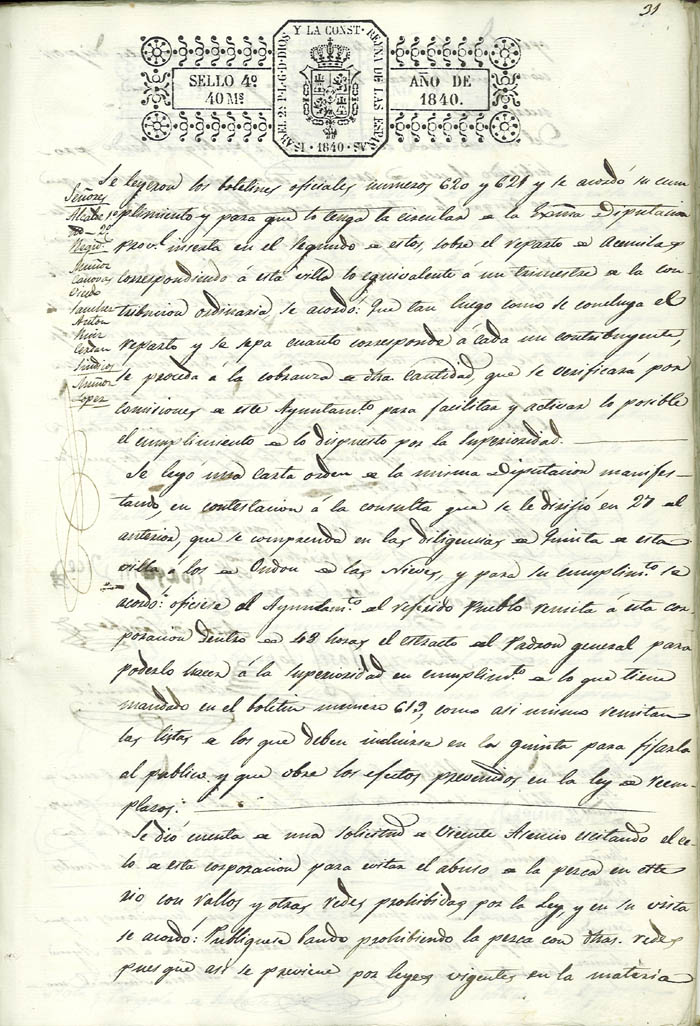 31
Y LA CONST. REYNA DE LAS ESPAÑAS
ISABEL 2ª P.L.G.D.DIOS
SELLO 4º
40 Ms
AÑO DE
1840.
1840
Se leyeron los boletines oficiales numeros 620 y 621 y se acordó su cum
plimiento y para que lo tenga la circular de la Exma Diputacion
Provl. inserta en el segundo de estos, sobre el reparto de
correspondiendo á esta villa lo equivalente á un trimestre de la con
tribucion ordinaria, se acordó: Que tan luego como se concluya el
reparto y se sepa cuanto corresponde á cada un contribuyente,
se proceda á la cobranza de dha cantidad, que se verificará por
comisiones de este Ayuntamto para facilitar y activar lo posible
el cumplimiento de lo dispuesto por la Superioridad.
Señores
Alcaldes
2º
Regid.
Muñoz
Canovas
Oledo
Sanchez
Anton
Ruiz
Cerdan
Sindicos
Muñoz
Lopez
Se leyó una Carta orden de la misma Diputacion manifes-
tando, en contestacion á la consulta que se le dirijió en 27 del
anterior, que se comprenda en las diligencias de Quinta de esta
villa á los de Ondon de las Nieves, y para su cumplimto se
acordó: oficiese al Ayuntamto del referido Pueblo remita á esta cor
poracion dentro de 48 horas el estracto del Padron general para
poderlo hacer á la Superioridad en cumplimto de lo que tiene
mandado en el boletin numero 613, como asi mismo remitan
las listas de los que deben incluirse en la quinta para fijarla
al publico y que obre los efectos prevenidos en la ley de reem-
plazos.
Se dió cuenta de una solicitud de Vicente Asencio escitando el ce-
lo de esta corporacion para evitar el abuso de la pesca en este
rio con vallos y otras redes prohibidas por la Ley, y en su vista
se acordó: Publiquese bando prohibiendo la pesca con dhas. redes
pues que así se previene por leyes vigentes en la materia